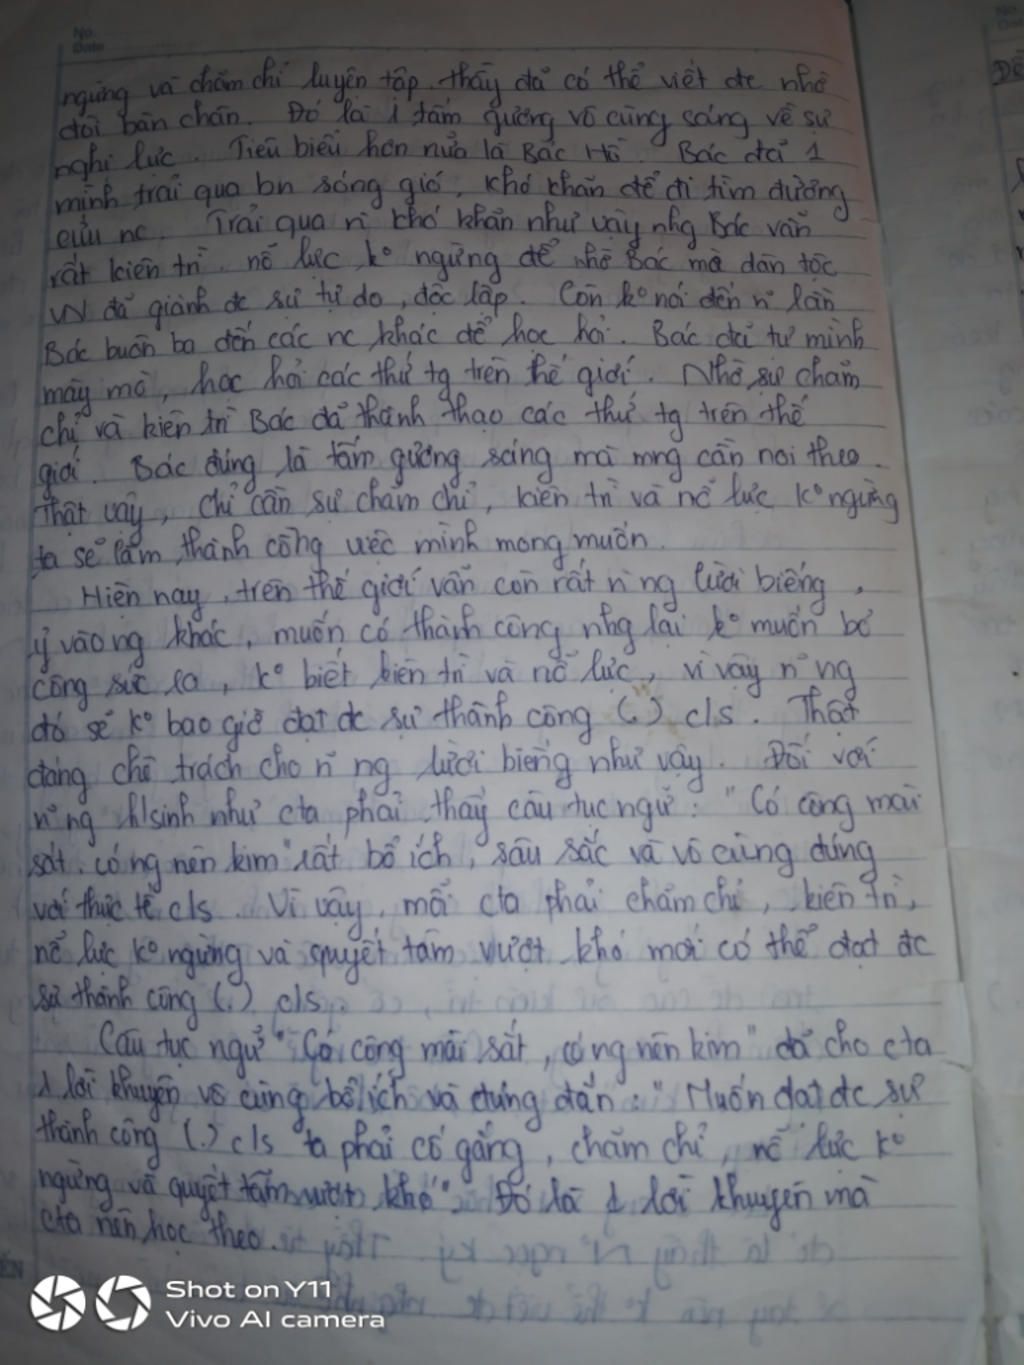 No.
Date
ngừng và chăm chỉ luyện tập thầy đã có thể viết đc nhờ
đôi bàn chân. Đó là 1 tấm gương vô cùng sáng về sự
nghị lực. Tiêu biểu hơn nữa là Bác Hồ. Bác đã 1
mình trải qua bn sóng gió, khó khăn để đi tìm đường
cứu nc. Trải qua n~ khó khăn như vậy nhg Bác vẫn
rất kiên trì nỗ lực k° ngừng để nhờ Bác mà dân tộc
VN đã giành đc sự tự do, độc lập. Còn k° nói đến n~ lần
Bác buôn ba đến các nc khác để học hỏi. Bác đã tự mình
mày mò, học hỏi các thứ tg trên thế giới. Nhờ sự chăm
chỉ và kiên trì Bác đã thành thạo các thứ tg trên thế
giới. Bác đúng là tấm gương sáng mà mng cần noi theo.
Thật vậy, chỉ cần sự chăm chỉ, kiên trì và nỗ lực k° ngừng
ta sẽ làm thành công việc mình mong muốn.
Hiện nay, trên thế giới vẫn còn rất n~ ng lười biếng,
ỷ vào ng khác, muốn có thành công nhg lại k° muốn bỏ
công sức ra, k° biết kiên trì và nỗ lực, vì vậy n~ ng
đó sẽ k° bao giờ đạt đc sự thành công (.) c/s. Thật
đáng chê trách cho n~ ng lười biếng như vậy. Đối với
n~ ng h/sinh như cta phải thấy câu tục ngữ: "Có công mài
sắt có ng nên kim" rất bổ ích, sâu sắc và vô cùng đúng
với thực tế c/s. Vì vậy, mỗi cta phải chăm chỉ, kiên trì,
nỗ lực k° ngừng và quyết tâm vượt khó mới có thể đạt đc
sự thành công (.) c/s.
Câu tục ngữ "Có công mài sắt, có ng nên kim" đã cho cta
1 lời khuyên vô cùng bổ ích và đúng đắn: "Muốn đạt đc sự
thành công (.) c/s ta phải cố gắng, chăm chỉ, nỗ lực k°
ngừng và quyết tâm vượt khó". Đó là 1 lời khuyên mà
cta nên học theo.
Shot on Y11
Vivo AI camera